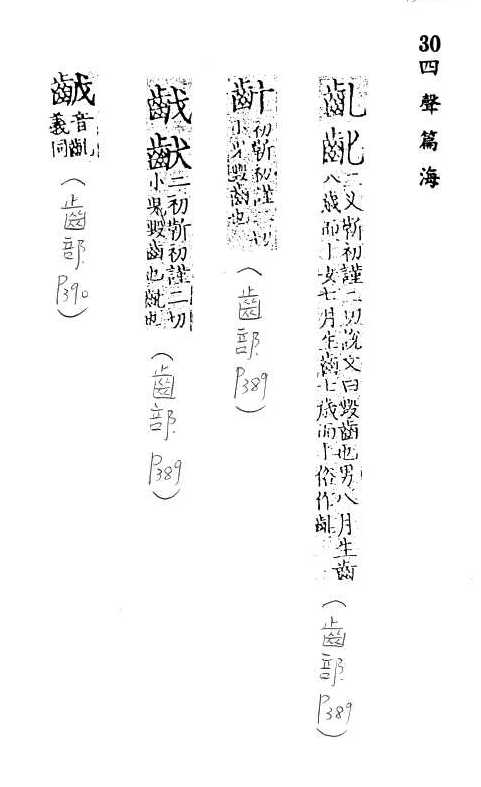 30四聲篇海
齔𪗱二又靳初謹二切說文曰毀齒也男八月生齒
八歲而齔女七月生齒七歲而齔俗作齓
(齒部P389)
初靳初謹二切
小兒毀齒也
(齒部P389)
二初靳初謹二切
小兒毀齒也齔也
(齒部P389)
音齔
義同
(齒部P390)